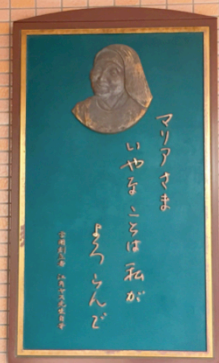 マリアさま
いやなことは私が
よろこんで